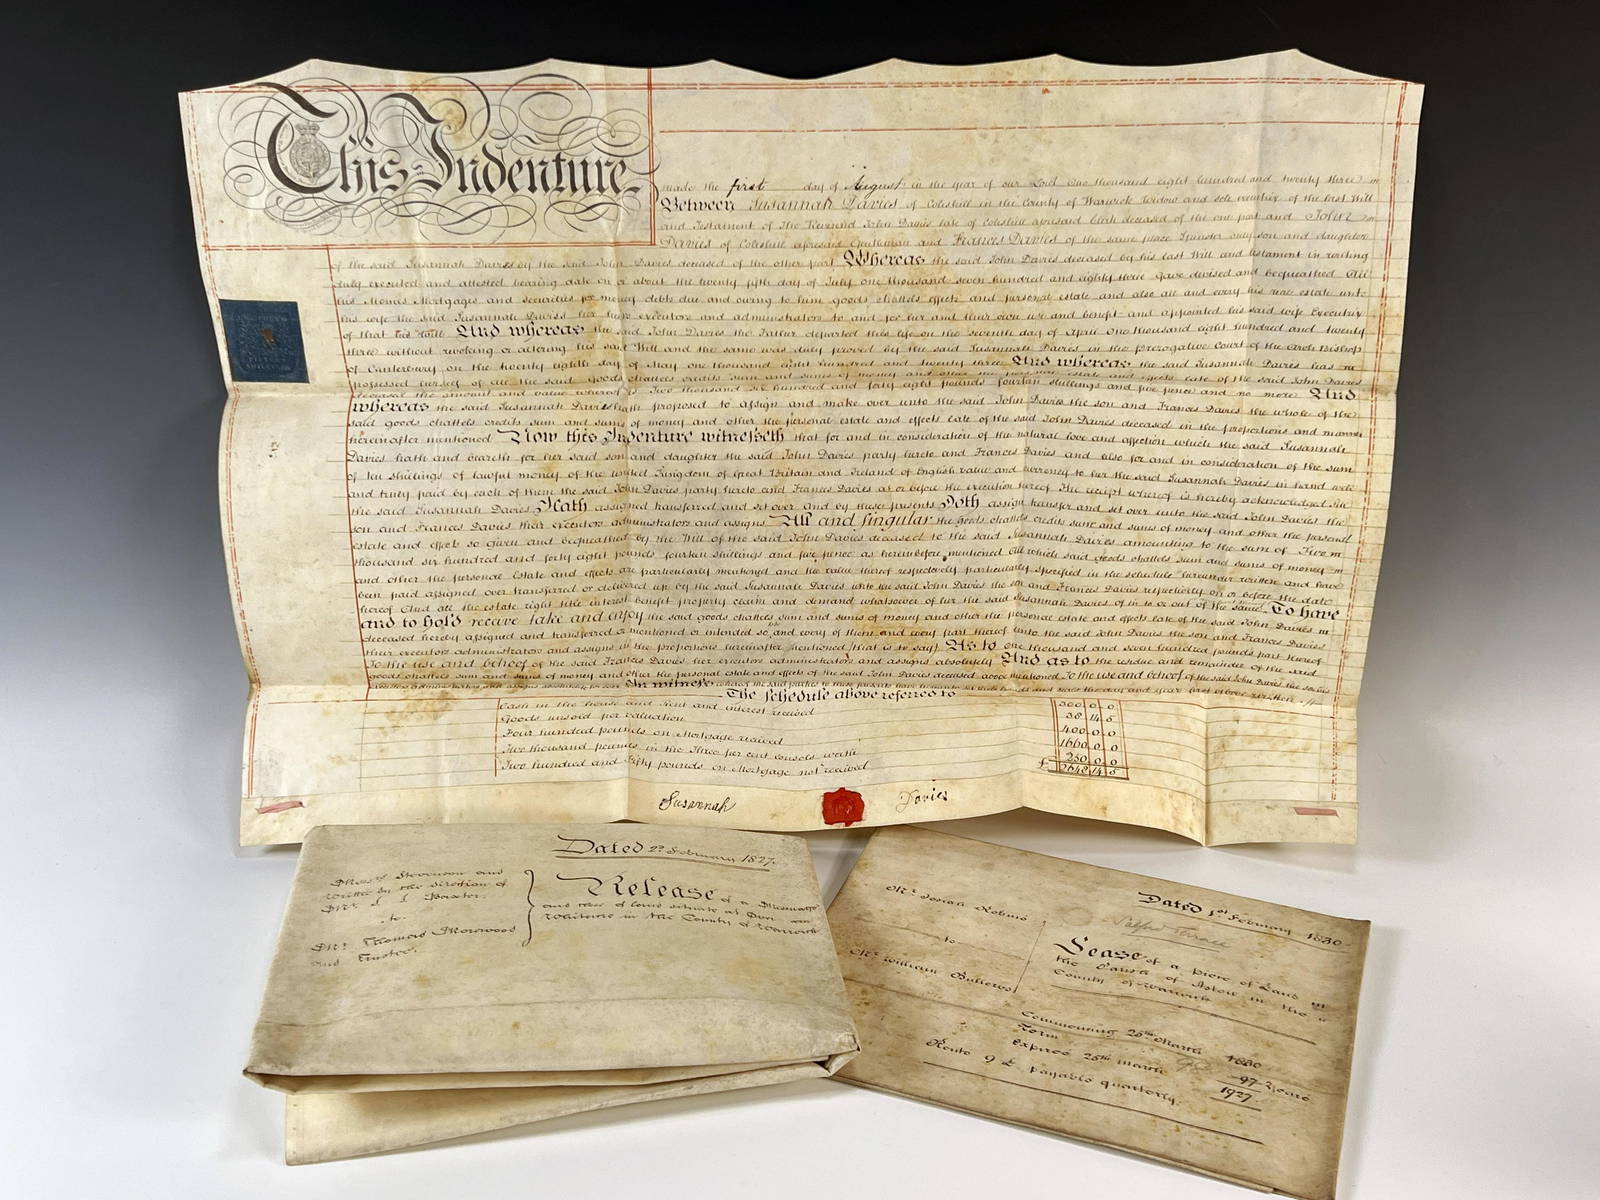 This Indenture
made the first day of August in the year of our Lord One thousand eight hundred and twenty three
Between Susannah Davies of Coleshill in the County of Warwick Widow and sole executrix of the last Will
and Testament of The Reverend John Davies late of Coleshill aforesaid Clerk deceased of the one part and John
Davies of Coleshill aforesaid Gentleman and Frances Davies of the same place Spinster only son and daughter
of the said Susannah Davies by the said John Davies deceased of the other part Whereas the said John Davies deceased by his last Will and testament in writing
duly executed and attested bearing date on or about the twenty fifth day of July one thousand seven hundred and eighty three Gave devised and bequeathed All
his Monies Mortgages and Securities for money debts due and owing to him goods chattels effects and personal estate and also all and every his real estate unto
his wife the said Susannah Davies her heirs executors and administrators to and for her and their own use and benefit and appointed his said wife Executrix
of that his Will And whereas the said John Davies the Father departed this life on the seventh day of April One thousand eight hundred and twenty
three without revoking or altering his said Will and the same was duly proved by the said Susannah Davies in the Prerogative Court of the Arch Bishop
of Canterbury on the twenty eighth day of May one thousand eight hundred and twenty three And whereas the said Susannah Davies has
possessed herself of all the said Goods chattels credits sum and sums of money and other the personal estate and effects late of the said John Davies
deceased the amount and value whereof is Two thousand six hundred and forty eight pounds fourteen shillings and five pence and no more And
whereas the said Susannah Davies hath proposed to assign and make over unto the said John Davies the son and Frances Davies the whole of the
said goods chattels credits sum and sums of money and other the personal estate and effects late of the said John Davies deceased in the proportions and manner
hereinafter mentioned Now this Indenture witnesseth that for and in consideration of the natural love and affection which the said Susannah
Davies hath and beareth for her said son and daughter the said John Davies party hereto and Frances Davies and also for and in consideration of the sum
of ten shillings of lawful money of the united Kingdom of Great Britain and Ireland of English value and currency to her the said Susannah Davies in hand well
and truly paid by each of them the said John Davies party hereto and Frances Davies at or before the execution hereof The receipt whereof is hereby acknowledged She
the said Susannah Davies Hath assigned transferred and set over and by these presents Doth assign transfer and set over unto the said John Davies the
son and Frances Davies their executors administrators and assigns All and singular the goods chattels credits sum and sums of money and other the personal
estate and effects so given and bequeathed by the Will of the said John Davies deceased to the said Susannah Davies amounting to the sum of Two
thousand six hundred and forty eight pounds fourteen shillings and five pence as hereinbefore mentioned All which said goods chattels sum and sums of money
and other the personal Estate and effects are particularly mentioned and the value thereof respectively particularly specified in the schedule hereunder written and have
been paid assigned over transferred or delivered up by the said Susannah Davies unto the said John Davies the son and Frances Davies respectively on or before the date
hereof And all the estate right title interest benefit property claim and demand whatsoever of her the said Susannah Davies of in to or out of the same To have
and to hold receive take and enjoy the said goods chattels sum and sums of money and other the personal estate and effects late of the said John Davies
deceased hereby assigned and transferred or mentioned or intended so to be and every of them and every part thereof unto the said John Davies the son and Frances Davies
their executors administrators and assigns in the proportions hereinafter mentioned (that is to say) As to one thousand and seven hundred pounds part thereof
To the use and behoof of the said Frances Davies her executors administrators and assigns absolutely And as to the residue and remainder of the said
goods chattels sum and sums of money and other the personal estate and effects of the said John Davies deceased above mentioned To the use and behoof of the said John Davies the son his
executors administrators and assigns In witness whereof the said parties to these presents have hereunto set their hands and seals the day and year first above written
The Schedule above referred to
Cash in the house and Rent and interest received 300 0 0
Goods unsold per valuation 38 14 5
Four hundred pounds on Mortgage received 400 0 0
Two thousand pounds in the Three per cent consols worth 1660 0 0
Two hundred and Fifty pounds on Mortgage not received 250 0 0
£ 2648 14 5
Susannah Davies
Dated 2d. February 1827.
Messrs Stevenson and
by the direction of
to
Mr. Thomas Morewood
and Trustee.
Release of a Messuage
and of land situate at
in the County of Warwick
Dated 1st February 1830
Mr Josiah Robins
to
Mr William
Terrace
Lease of a piece of Land in
the Parish of Aston in the
County of Warwick
Commencing 25th March 1830
Term 97 Years
Expires 25th March 1927
9 £ payable quarterly.